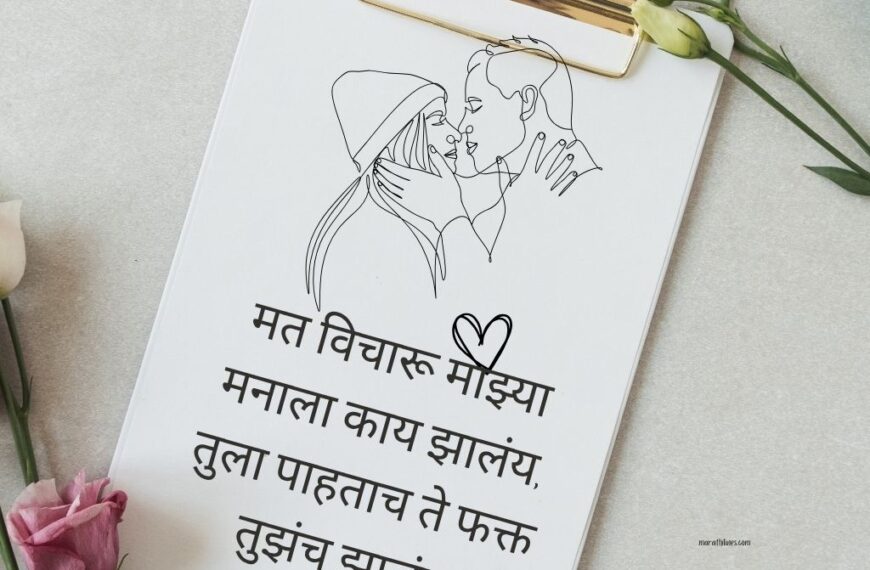 मत विचारू माझ्या
मनाला काय झालंय,
तुला पाहताच ते फक्त
तुझंच
marathilines.com